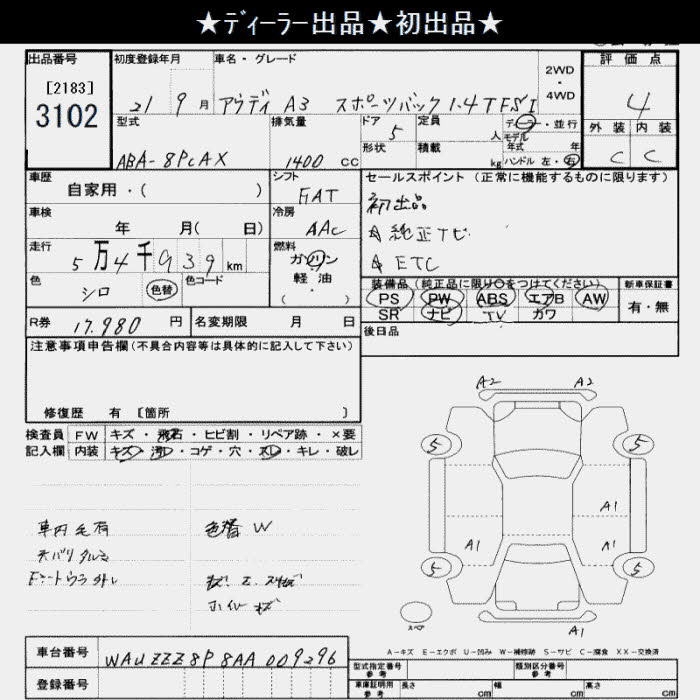 ★ディーラー出品★初出品★
出品番号
[2183]
3102
初度登録年月
21 9月
車名・グレード
アウディ A3 スポーツバック 1.4TFSI
2WD
・
4WD
評価点
4
外装 内装
C C
型式
ABA-8PCAX
排気量
1400 cc
ドア
5
形状
定員
人
積載
kg
ディーラー・並行
モデル
年式 年
ハンドル 左・右
車歴
自家用・( )
シフト
FAT
セールスポイント(正常に機能するものに限ります)
初出品
☆純正ナビ
☆ETC
車検
年 月( 日)
冷房
AAC
走行
5万4千939km
燃料
ガソリン
軽油
・
色
シロ
色替
色コード
装備品(純正品に限り○をつけてください)
PS PW ABS エアB AW
SR ナビ TV カワ
新車保証書
有・無
R券
17,980円
名変期限 月 日
後日品
注意事項申告欄(不具合内容等は具体的に記入して下さい)
修復歴 有 [箇所 ]
検査員 FW キズ・飛石・ヒビ割・リペア跡・×要
記入欄 内装 キズ・汚レ・コゲ・穴・スレ・キレ・破レ
車内毛有
天バリタルミ
色替 W
ホイルキズ
A2 A2
5 5
A1
A1 A1
5 5
A1
スペア
A-キズ E-エクボ U-凹み W-補修跡 S-サビ C-腐食 XX-交換済
車台番号
WAUZZZ8P8AA009296
登録番号
型式指定番号
参考
類別区分番号
参考
車庫証明用
参考
長さ cm
幅 cm
高さ cm